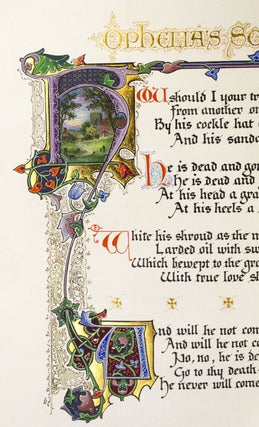 OPHELIA'S SO
How should I your tr
From another on
By his cockle hat
And his sanda
He is dead and gon
He is dead and
At his head a gra
At his heels a
White his shroud as the m
Larded oil with sw
Which bewept to the gra
With true love s
And will he not com
And will he not co
No, no, he is de
Go to thy death
He never will come